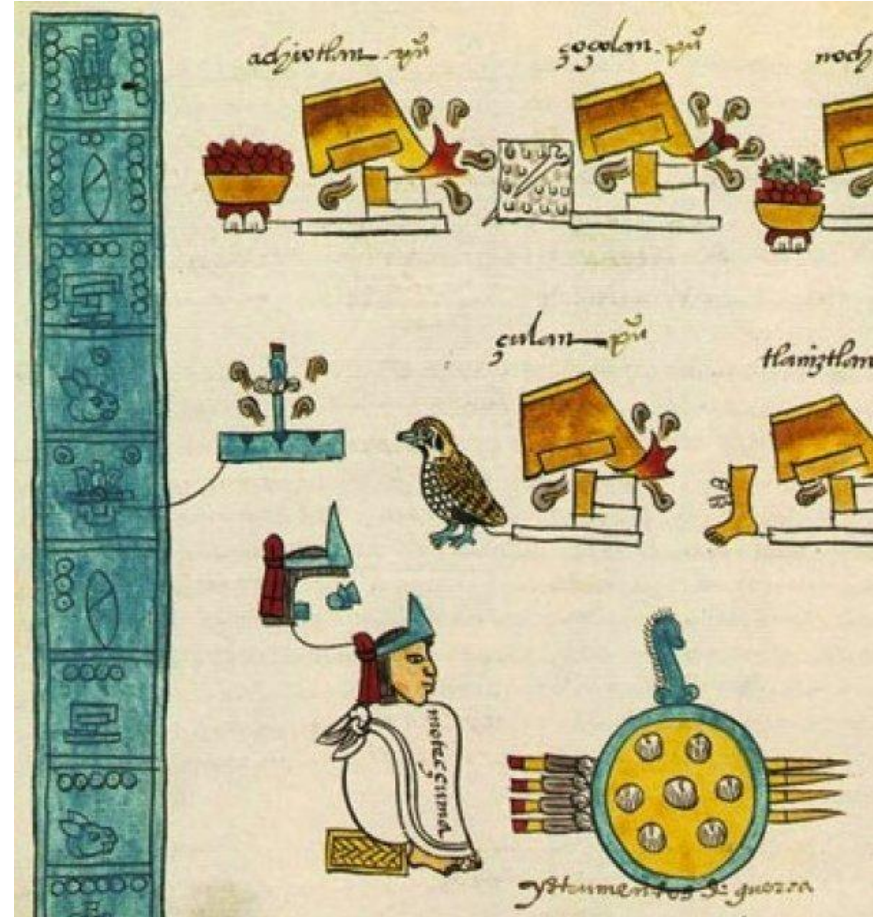 achiotlan . pū
çoçolan . pū
noch
çulan pū
tlaniztlan
motecçuma
ystrumentos de guerra